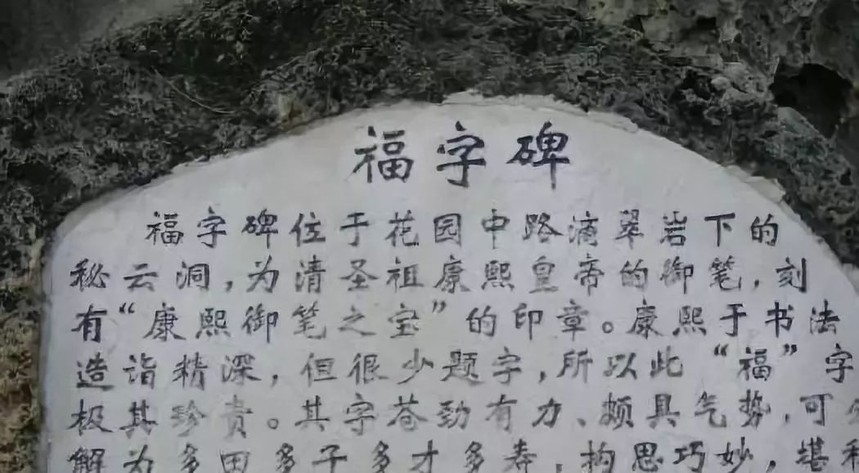 福字碑
福字碑位于花园中路滴翠岩下的
秘云洞，为清圣祖康熙皇帝的御笔，刻
有“康熙御笔之宝”的印章。康熙于书法
造诣精深，但很少题字，所以此“福”字
极其珍贵。其字苍劲有力、颇具气势，可
解为多田多子多才多寿，构思巧妙，堪称